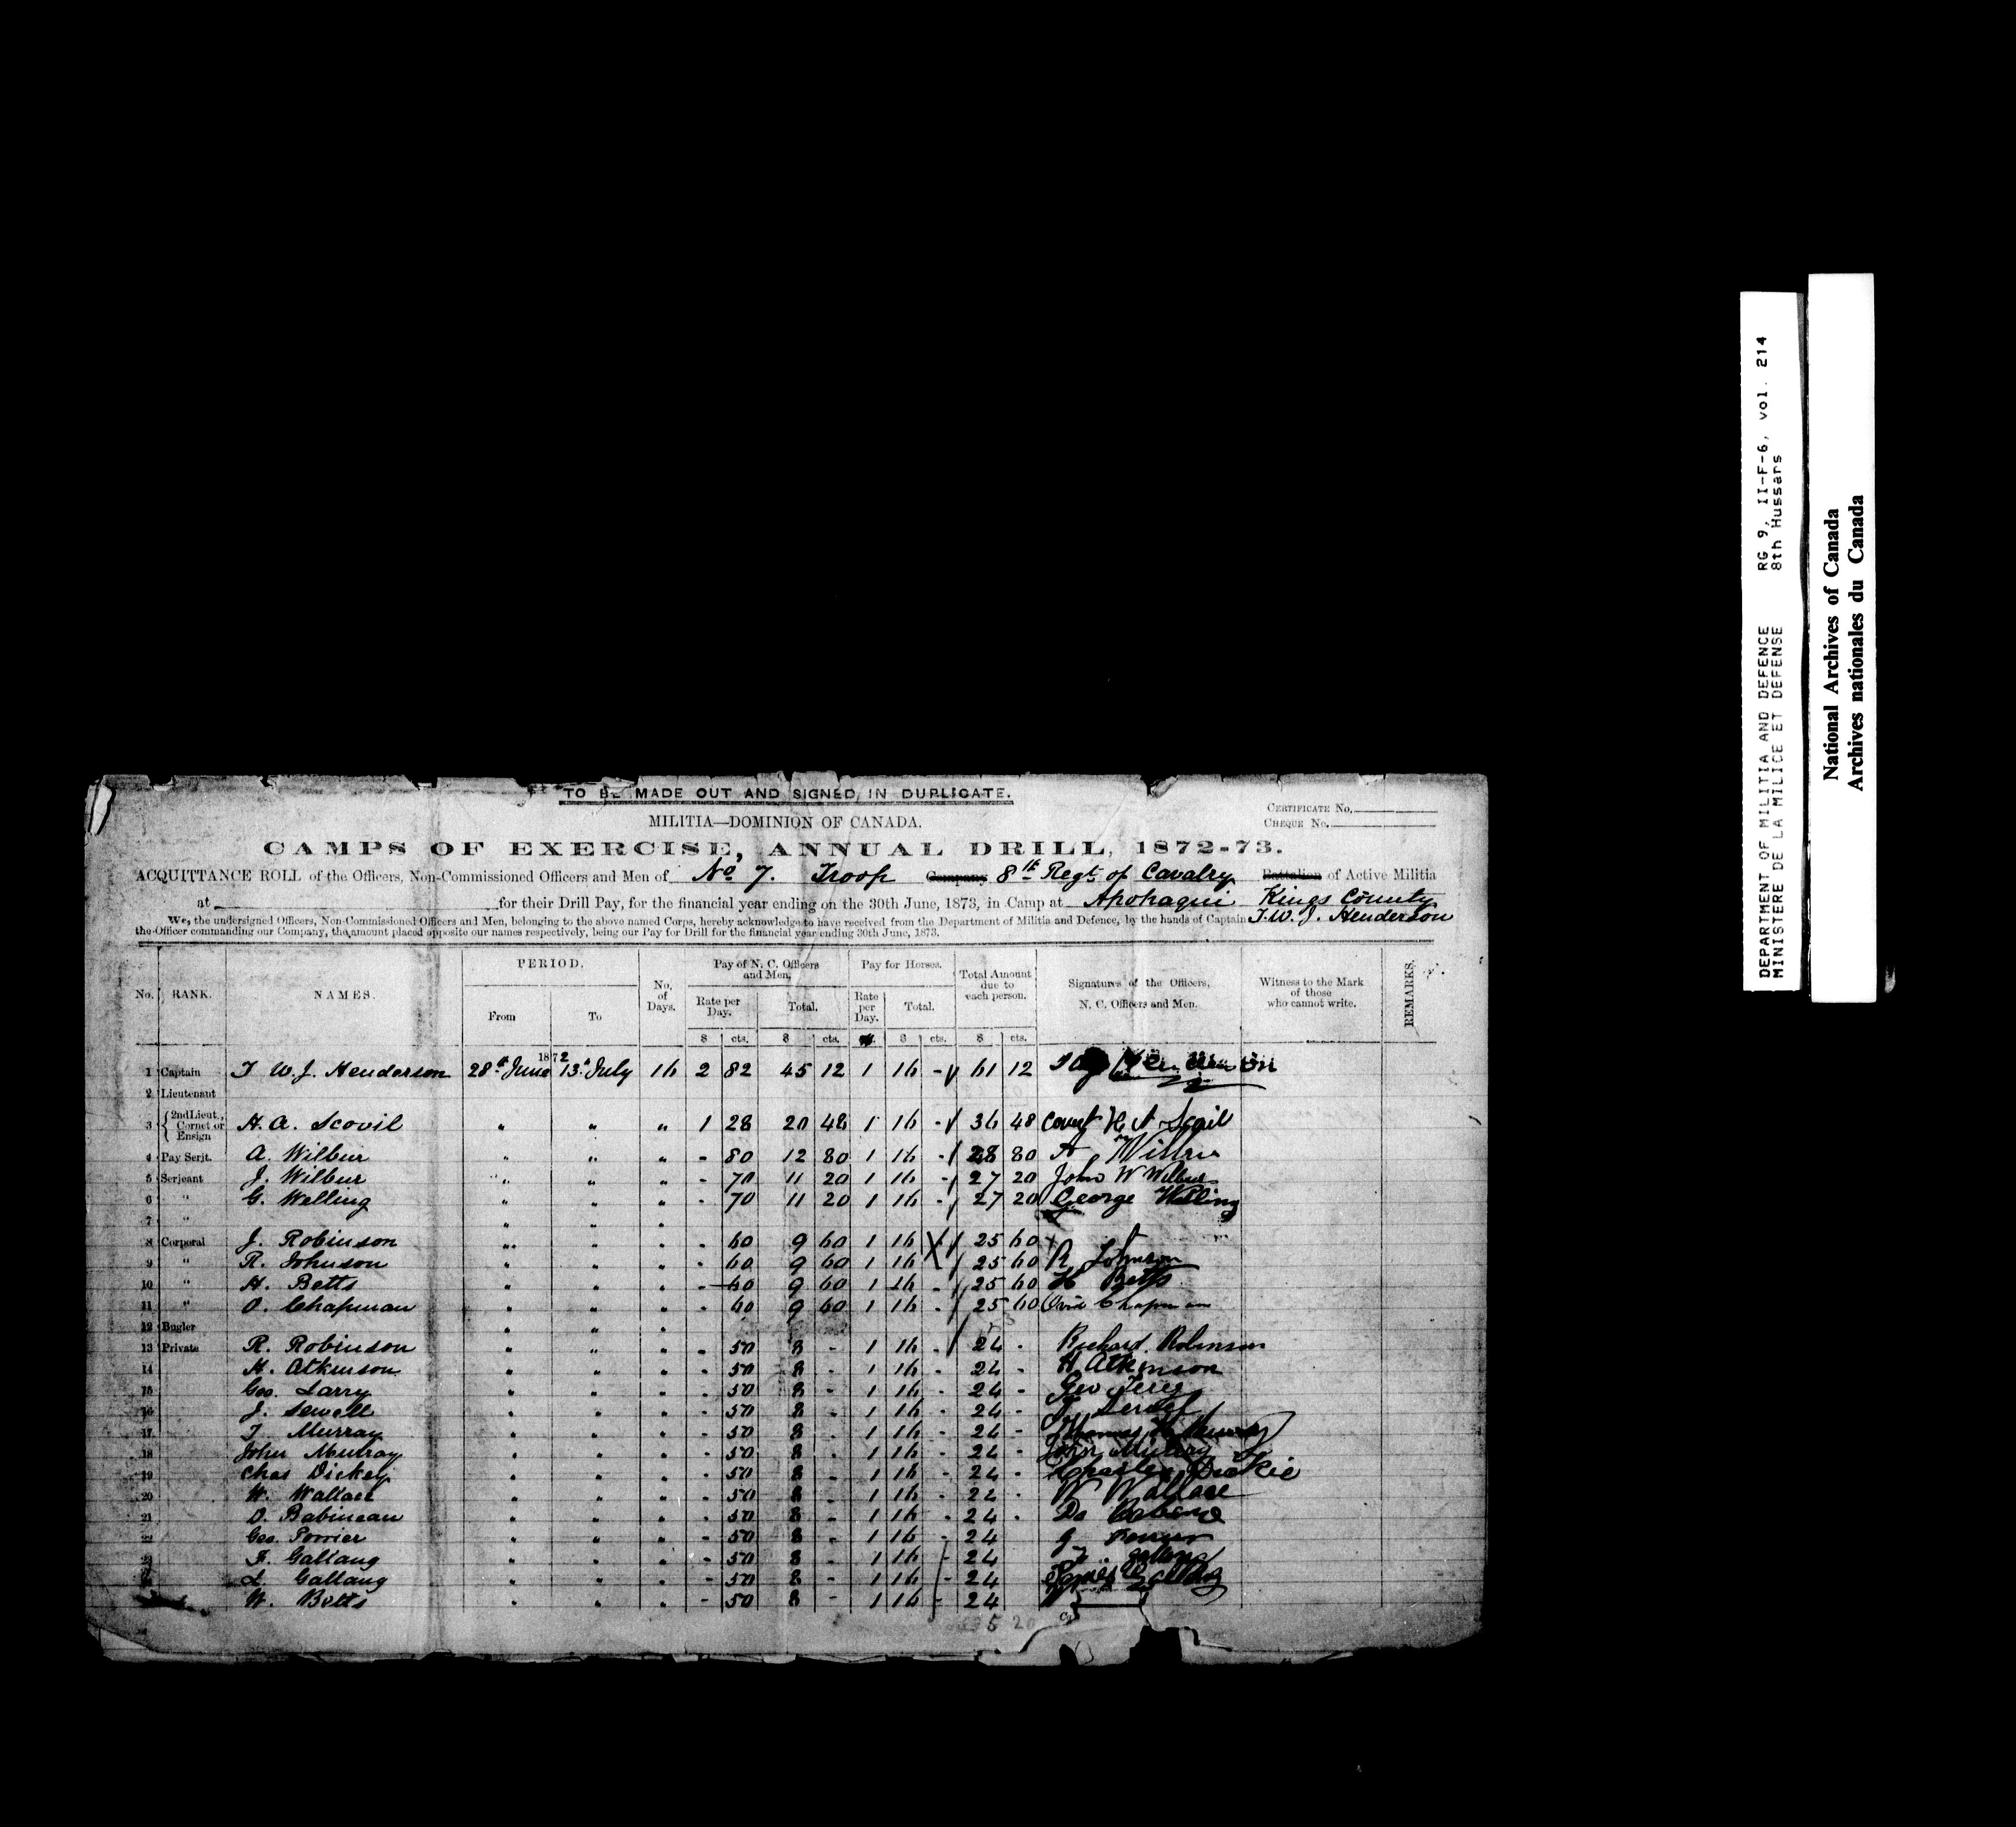 TO BE MADE OUT AND SIGNED IN DUPLICATE.
MILITIA—DOMINION OF CANADA.
CERTIFICATE No.
CHEQUE No.
CAMPS OF EXERCISE, ANNUAL DRILL, 1872-73.
ACQUITTANCE ROLL of the Officers, Non-Commissioned Officers and Men of No 7. Troop Company 8th Regt of Cavalry Battalion of Active Militia
at for their Drill Pay, for the financial year ending on the 30th June, 1873, in Camp at Apohaqui Kings County
We, the undersigned Officers, Non-Commissioned Officers and Men, belonging to the above named Corps, hereby acknowledge to have received from the Department of Militia and Defence, by the hands of Captain T.W.J. Henderson
the Officer commanding our Company, the amount placed opposite our names respectively, being our Pay for Drill for the financial year ending 30th June, 1873.
No. RANK. NAMES. PERIOD. From To No. of Days. Pay of N. C. Officers and Men. Rate per Day. Total. Pay for Horses. Rate per Day. Total. Total Amount due to each person. Signatures of the Officers, N. C. Officers and Men. Witness to the Mark of those who cannot write. REMARKS.
$ cts. $ cts. $ cts. $ cts.
1872
1 Captain T W.J. Henderson 28th June 13th July 16 2 82 45 12 1 16 - 61 12
2 Lieutenant
3 2nd Lieut., Cornet or Ensign H. A. Scovil " " " 1 28 20 48 1 16 - 36 48 H A Scovil
4 Pay Serjt. A. Wilbur " " " - 80 12 80 1 16 - 28 80
5 Serjeant J. Wilbur " " " - 70 11 20 1 16 - 27 20 John W Wilbur
6 " G. Welling " " " - 70 11 20 1 16 - 27 20 George Welling
7 " " " "
8 Corporal J. Robinson " " " - 60 9 60 1 16 25 60
9 " R. Johnson " " " - 60 9 60 1 16 25 60 R Johnson
10 " H. Betts " " " - 60 9 60 1 16 - 25 60 H Betts
11 " O. Chapman " " " - 60 9 60 1 16 - 25 60 Ovid Chapman
12 Bugler " " "
13 Private R. Robinson " " " - 50 8 - 1 16 - 24 - Richard Robinson
14 H. Atkinson " " " - 50 8 - 1 16 - 24 - H Atkinson
15 Geo. Larry " " " - 50 8 - 1 16 - 24 - Geo
16 J. Sewell " " " - 50 8 - 1 16 - 24 -
17 T. Murray " " " - 50 8 - 1 16 - 24 - Thomas Murray
18 John Murray " " " - 50 8 - 1 16 - 24 - John Murray
19 Chas Dickey " " " - 50 8 - 1 16 - 24 - Charles Dickie
20 W. Wallace " " " - 50 8 - 1 16 - 24 - W Wallace
21 D. Babineau " " " - 50 8 - 1 16 - 24 -
22 Geo. Poirier " " " - 50 8 - 1 16 24
23 F. Gallang " " " - 50 8 - 1 16 - 24
L Gallang " " " - 50 8 - 1 16 - 24
W. Betts " " " - 50 8 - 1 16 - 24
DEPARTMENT OF MILITIA AND DEFENCE RG 9, II-F-6, vol. 214
MINISTERE DE LA MILICE ET DEFENSE 8th Hussars
National Archives of Canada
Archives nationales du Canada